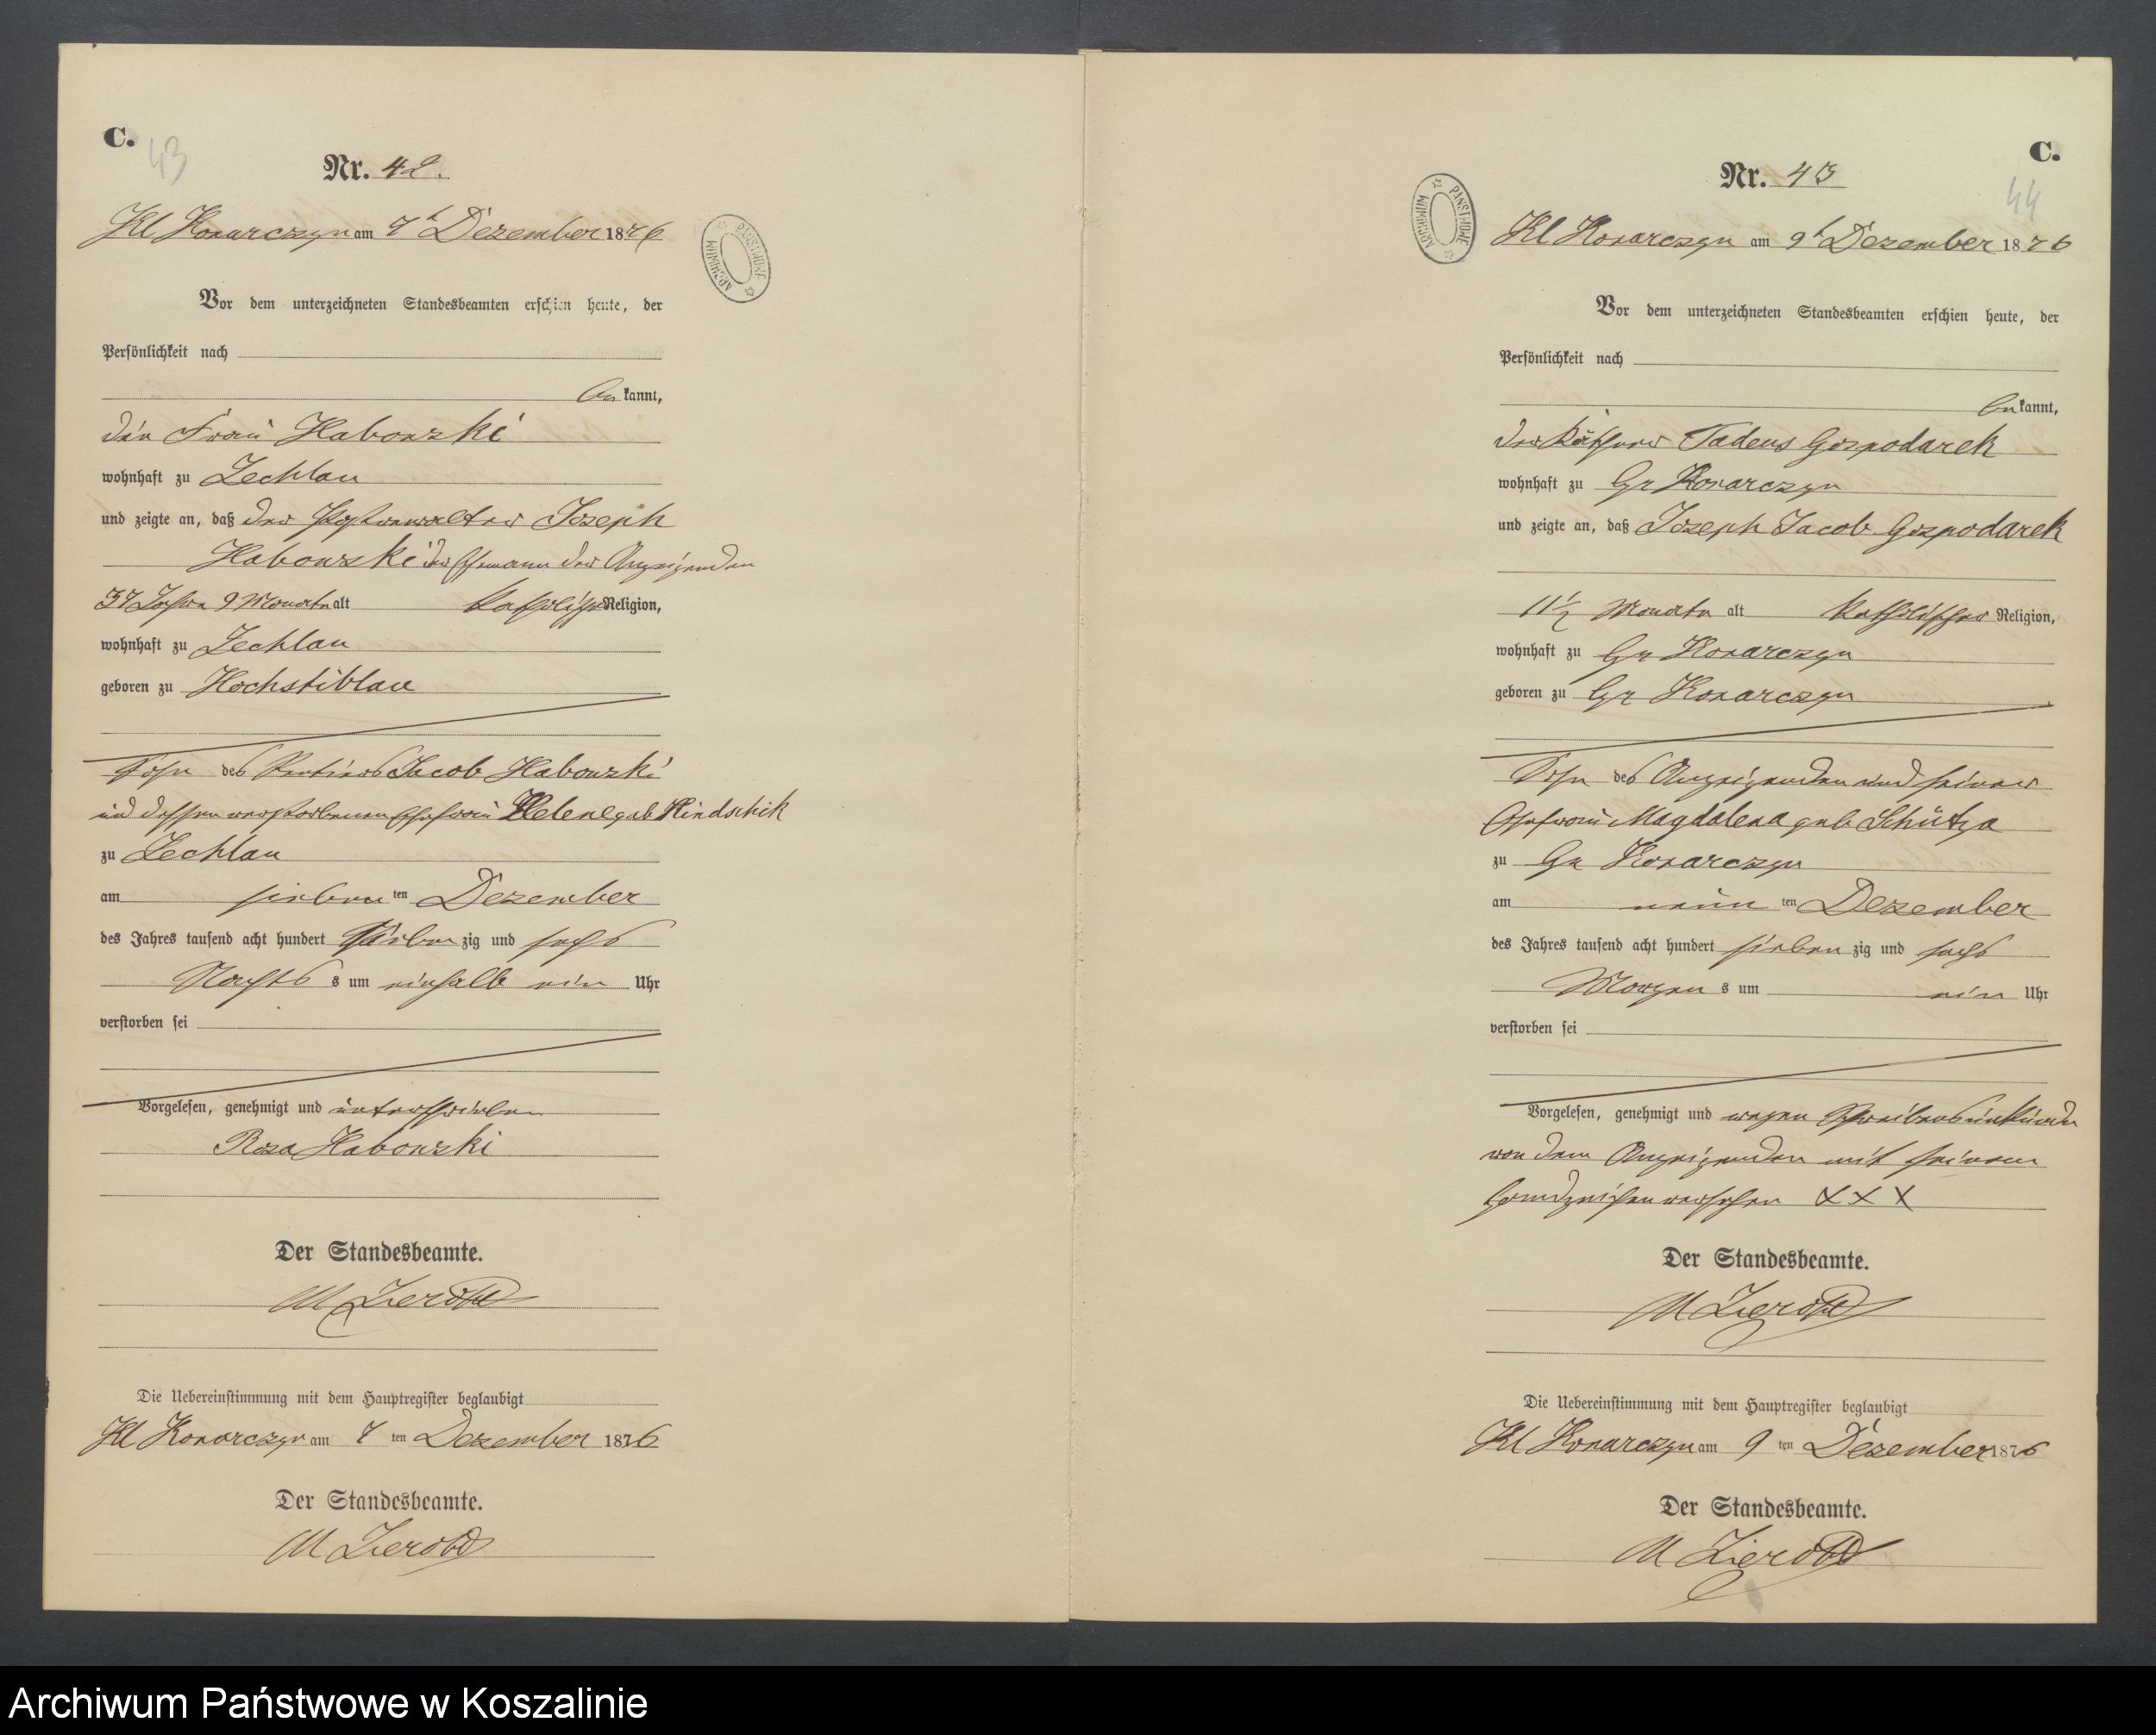 C.
43
Nr. 42.
Kl Konarczyn am 7t Dezember 1876
ARCHIWUM PANSTWOWE
Vor dem unterzeichneten Standesbeamten erschien heute, der
Persönlichkeit nach
be kannt,
die Frau Habowski
wohnhaft zu Zechlau
und zeigte an, daß der Postverwalter Joseph
Habowski der Ehemann der Anzeigenden
37 Jahre 9 Monate alt katholischer Religion,
wohnhaft zu Zechlau
geboren zu Hochstiblau
Sohn des Rentiers Jacob Habowski
und dessen verstorbenen Ehefrau Helene geb Hindschik
zu Zechlau
am sieben ten Dezember
des Jahres tausend acht hundert sieben zig und sechs
Nachts s um einhalb ein Uhr
verstorben sei
Vorgelesen, genehmigt und unterschrieben
Roza Habowski
Der Standesbeamte.
M
Die Uebereinstimmung mit dem Hauptregister beglaubigt
Kl Konarczyn am 7 ten Dezember 1876
Der Standesbeamte.
M
C.
44
Nr. 43
Kl Konarczyn am 9t Dezember 1876
ARCHIWUM PANSTWOWE
Vor dem unterzeichneten Standesbeamten erschien heute, der
Persönlichkeit nach
be kannt,
der Käthner Tadeus Gospodarek
wohnhaft zu Gr Konarczyn
und zeigte an, daß Joseph Jacob Gospodarek
11½ Monate alt katholischer Religion,
wohnhaft zu Gr Konarczyn
geboren zu Gr Konarczyn
Sohn des Anzeigenden und seiner
Ehefrau Magdalena geb Schütza
zu Gr Konarczyn
am neun ten Dezember
des Jahres tausend acht hundert sieben zig und sechs
Morgen s um ein Uhr
verstorben sei
Vorgelesen, genehmigt und wegen Schreibensunkunde
von dem Anzeigenden mit seinem
Handzeichen versehen X X X
Der Standesbeamte.
M
Die Uebereinstimmung mit dem Hauptregister beglaubigt
Kl Konarczyn am 9 ten Dezember 1876
Der Standesbeamte.
M
Archiwum Państwowe w Koszalinie